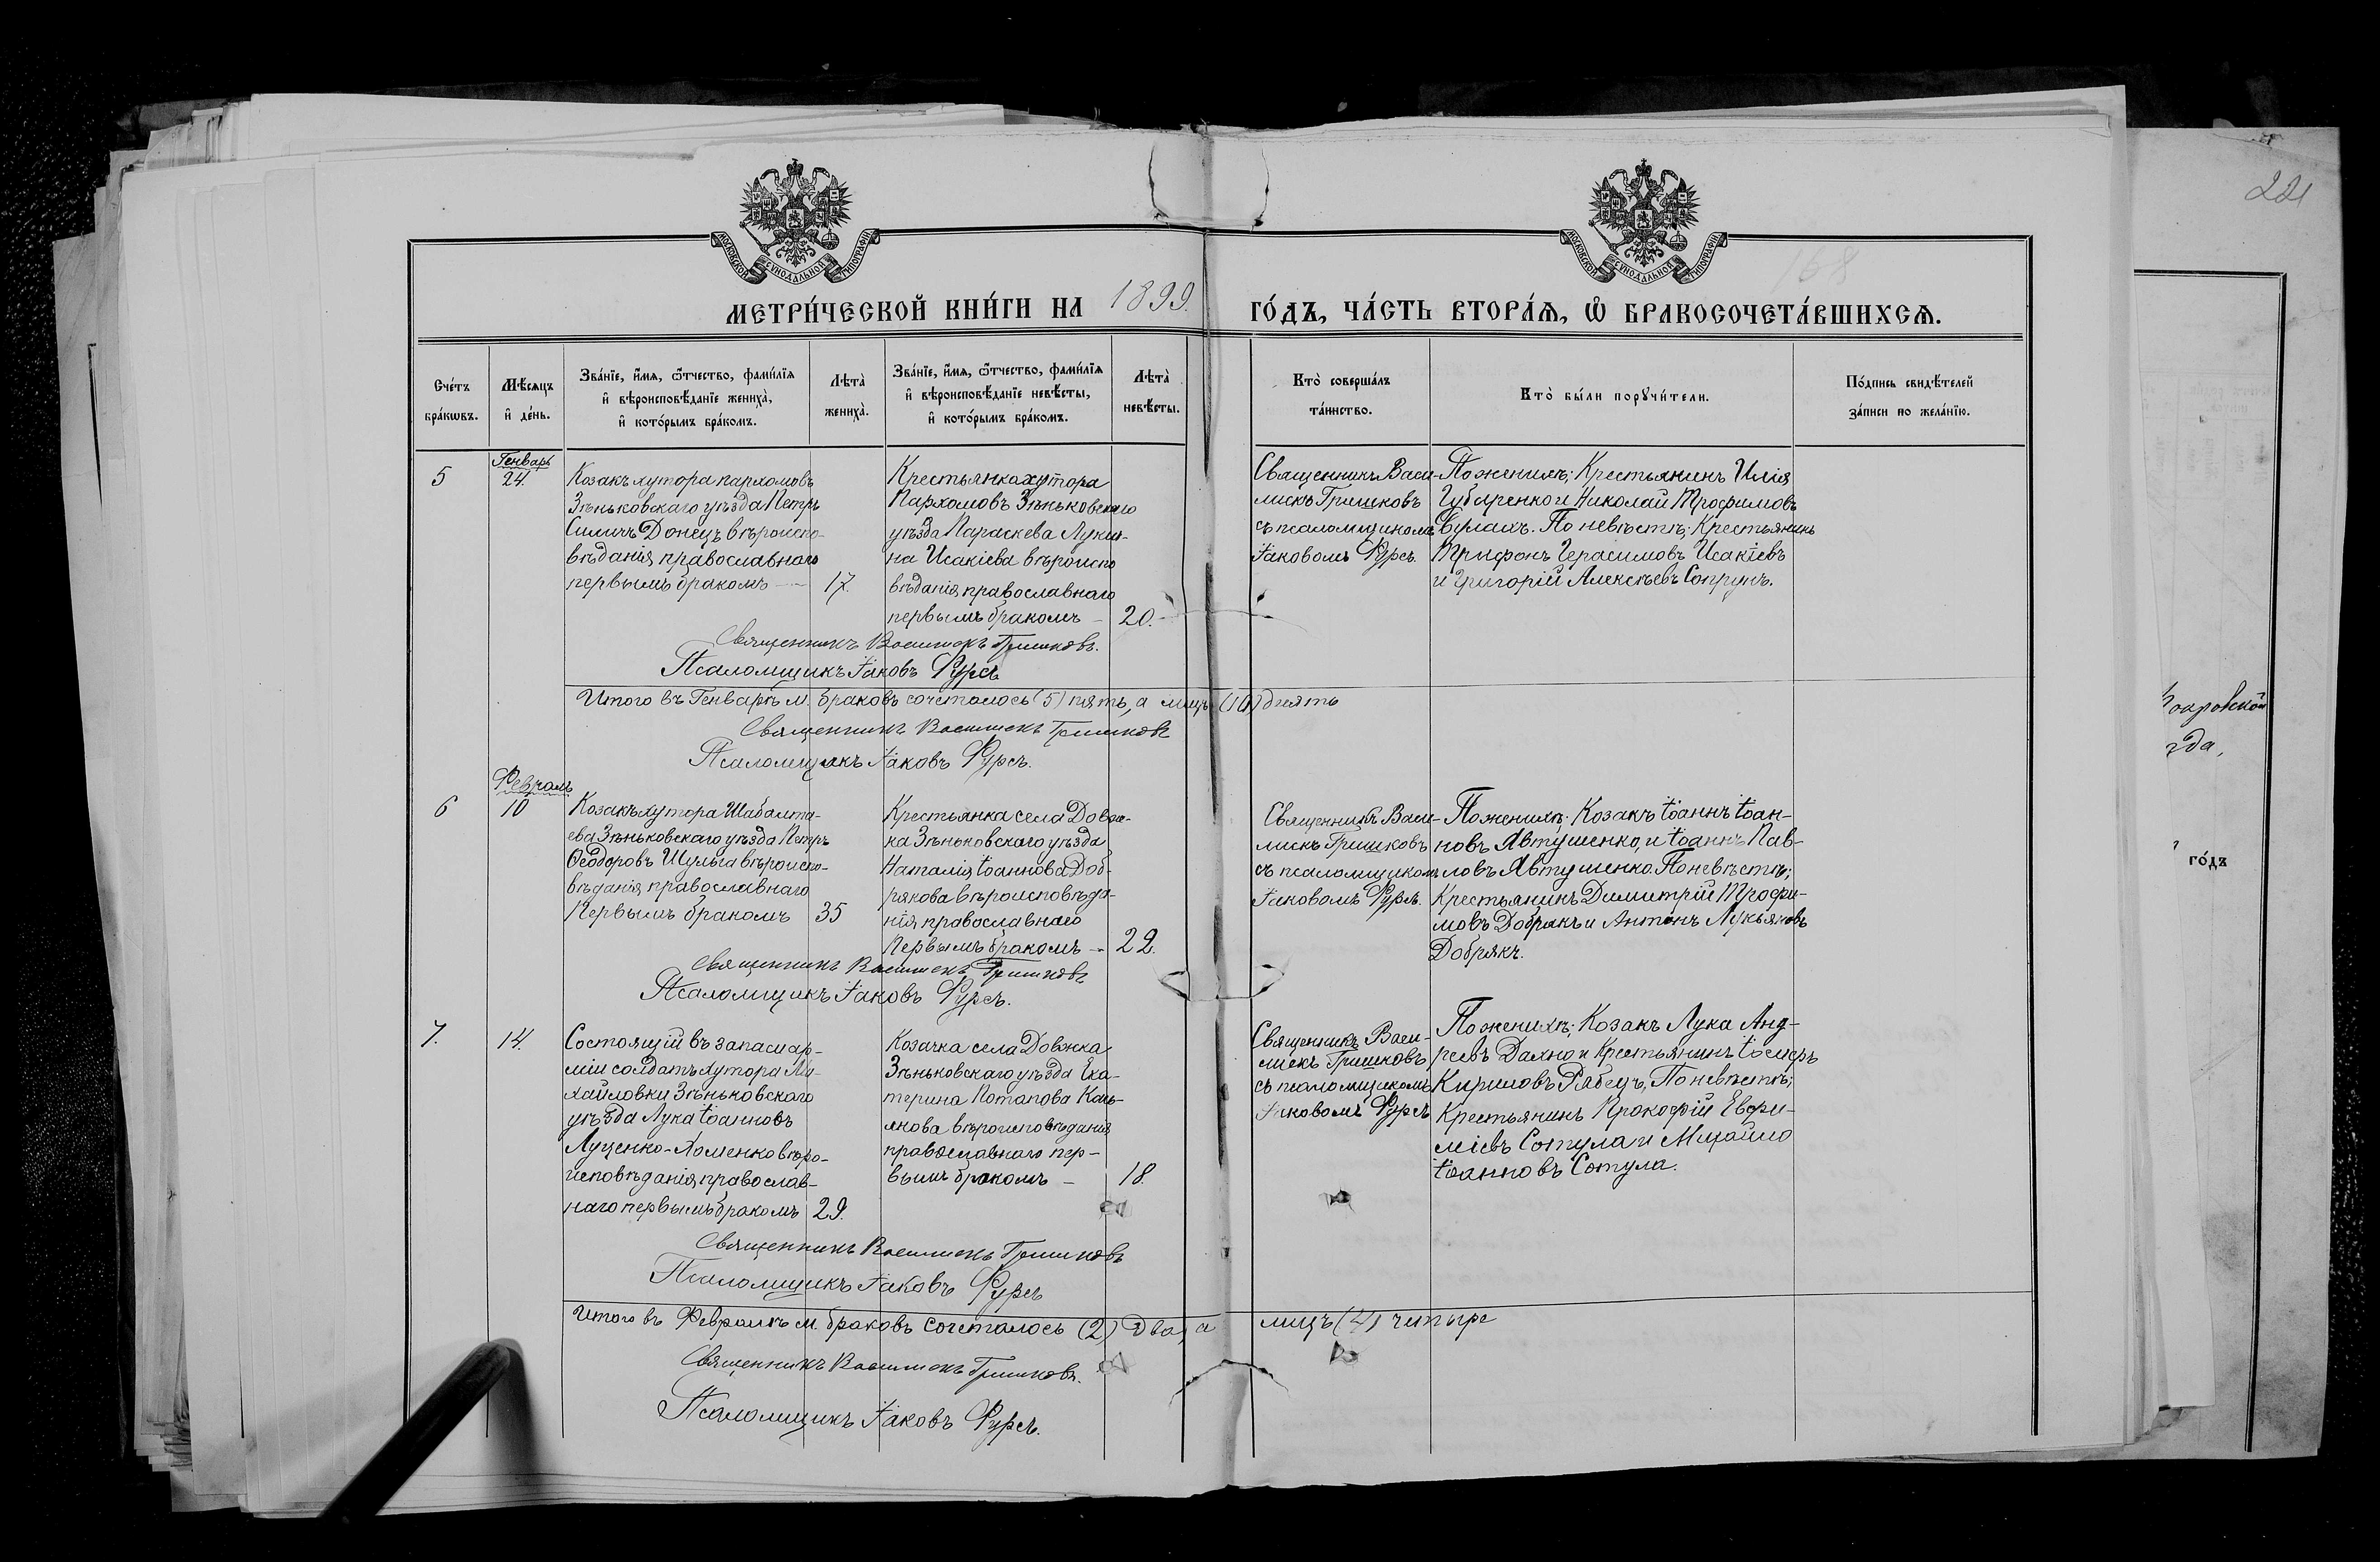 221
168
МОСКОВСКОЙ СѴНОДАЛЬНОЙ ТИПОГРАФІИ
МОСКОВСКОЙ СѴНОДАЛЬНОЙ ТИПОГРАФІИ
МЕТРИ́ЧЕСКОЙ КНИ́ГИ НА 1899. ГО́ДЪ, ЧА́СТЬ ВТОРА́Ѧ, Ѽ БРАКОСОЧЕТА́ВШИХСѦ.
Сче́тъ
бра́кѡвъ.
Мѣ́сяцъ
и҆ де́нь.
Зва́нїе, и҆́мя, ѻ҆́тчество, фами́лїя
и҆ вѣроисповѣ́данїе жениха̀,
и҆ кото́рымъ бра́комъ.
Лѣта̀
жениха̀.
Зва́нїе, и҆́мя, ѻ҆́тчество, фами́лїя
и҆ вѣроисповѣ́данїе невѣ́сты,
и҆ кото́рымъ бра́комъ.
Лѣта̀
невѣ́сты.
Кто̀ соверша́лъ
та́инство.
Кто̀ бы́ли порꙋчи́тели.
По́дпись свидѣ́телей
за́писи по жела́нїю.
5
Генварь
24.
Козакъ хутора Пархомовъ
Зѣньковскаго уѣзда Петръ
Силичъ Донецъ вѣроиспо-
вѣданія православнаго
первымъ бракомъ —
17.
Крестьянка хутора
Пархомовъ Зѣньковскаго
уѣзда Параскева Луки-
на Исакіева вѣроиспо
вѣданія православнаго
первымъ бракомъ —
20.
Священникъ Васи-
лискъ Гришковъ
съ псаломщикомъ
Іаковомъ Фурсъ.
По женихѣ; Крестьянинъ Илія
Губаренко и Николай Трофимовъ
Бурлахъ. По невѣстѣ; Крестьянинъ
Трифонъ Герасимовъ Исакіевъ
и Григорій Алексѣевъ Сопрунъ.
Священникъ Василискъ Гришковъ.
Псаломщикъ Іаковъ Фурсъ
Итого въ Генварѣ м. браковъ сочеталось (5) пять, а лицъ (10)
Священникъ Василискъ Гришковъ
Псаломщикъ Іаковъ Фурсъ.
6
Февраль
10
Козакъ хутора Шабалта-
ева Зѣньковскаго уѣзда Петръ
Ѳеодоровъ Шульга вѣроиспо-
вѣданія православнаго
Первымъ бракомъ
35
Крестьянка села Довж-
ка Зѣньковскаго уѣзда
Наталія Іоаннова Доб-
рякова вѣроисповѣда-
нія православнаго
Первымъ бракомъ —
22.
Священникъ Васи-
лискъ Гришковъ
съ псаломщикомъ
Іаковомъ Фурсъ.
По женихѣ; Козакъ Іоаннъ Іоан-
новъ Явтушенко, и Іоаннъ Пав-
ловъ Явтушенко. По невѣстѣ;
Крестьянинъ Димитрій Трофи-
мовъ Добрякъ и Антонъ Лукьяновъ
Добрякъ.
Священникъ Василискъ Гришковъ
Псаломщикъ Іаковъ Фурсъ.
7.
14.
Состоящій въ запасѣ ар-
міи солдатъ хутора Ми-
хайловки Зѣньковскаго
уѣзда Лука Іоанновъ
Луценко-Хоменко вѣро-
исповѣданія православ-
наго первымъ бракомъ
29.
Козачка села Довжка
Зѣньковскаго уѣзда Ека-
терина Потапова Касья-
нова вѣроисповѣданія
православнаго пер-
вымъ бракомъ —
18.
Священникъ Васи-
лискъ Гришковъ
съ псаломщикомъ
Іаковомъ Фурсъ
По женихѣ; Козакъ Лука Анд-
реевъ Дахно и Крестьянинъ Іосифъ
Кириловъ Рябецъ, По невѣстѣ;
Крестьянинъ Прокофій Евфи-
міевъ Сотула и Михаилъ
Іоанновъ Сотула.
Священникъ Василискъ Гришковъ
Псаломщикъ Іаковъ Фурсъ
Итого въ Февралѣ м. браковъ сочеталось (2) два, а лицъ (4) четыре
Священникъ Василискъ Гришковъ.
Псаломщикъ Іаковъ Фурсъ.
го́дъ